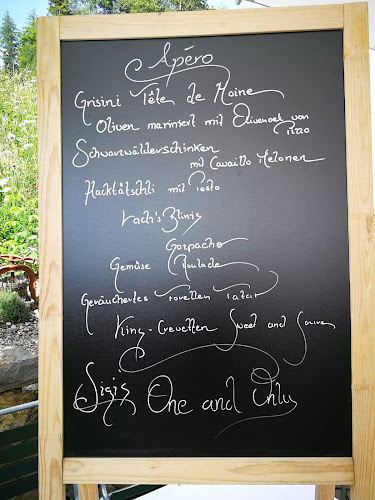 Apéro
Grisini Tête de Moine
Oliven mariniert mit Olivenoel von
Schwarzwälderschinken
mit Cavaillo Melonen
Hacktätschli mit Pesto
Lachs Blinis
Gazpacho
Gemüse Roulade
Geräuchertes Forellen Tatar
King-Crevetten Sweet and Sour
Sigi's One and Only